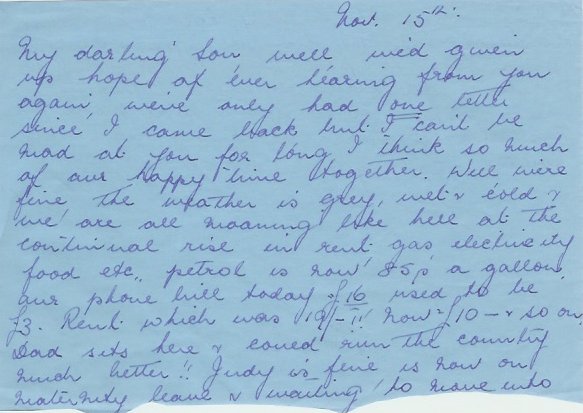 Nov. 15th.
My darling Son well we'd given
up hope of ever hearing from you
again, we've only had one letter
since I came back but I can't be
mad at you for long I think so much
of our happy time together. Well we're
fine the weather is grey, wet & cold &
we are all moaning like hell at the
continual rise in rent gas electricity
food etc., petrol is now 85p a gallon,
our phone bill today £16 used to be
£3. Rent which was 19/-!! now £10 - & so on
Dad sits here & could run the country
much better!! Judy is fine is now on
maternity leave & waiting to move into